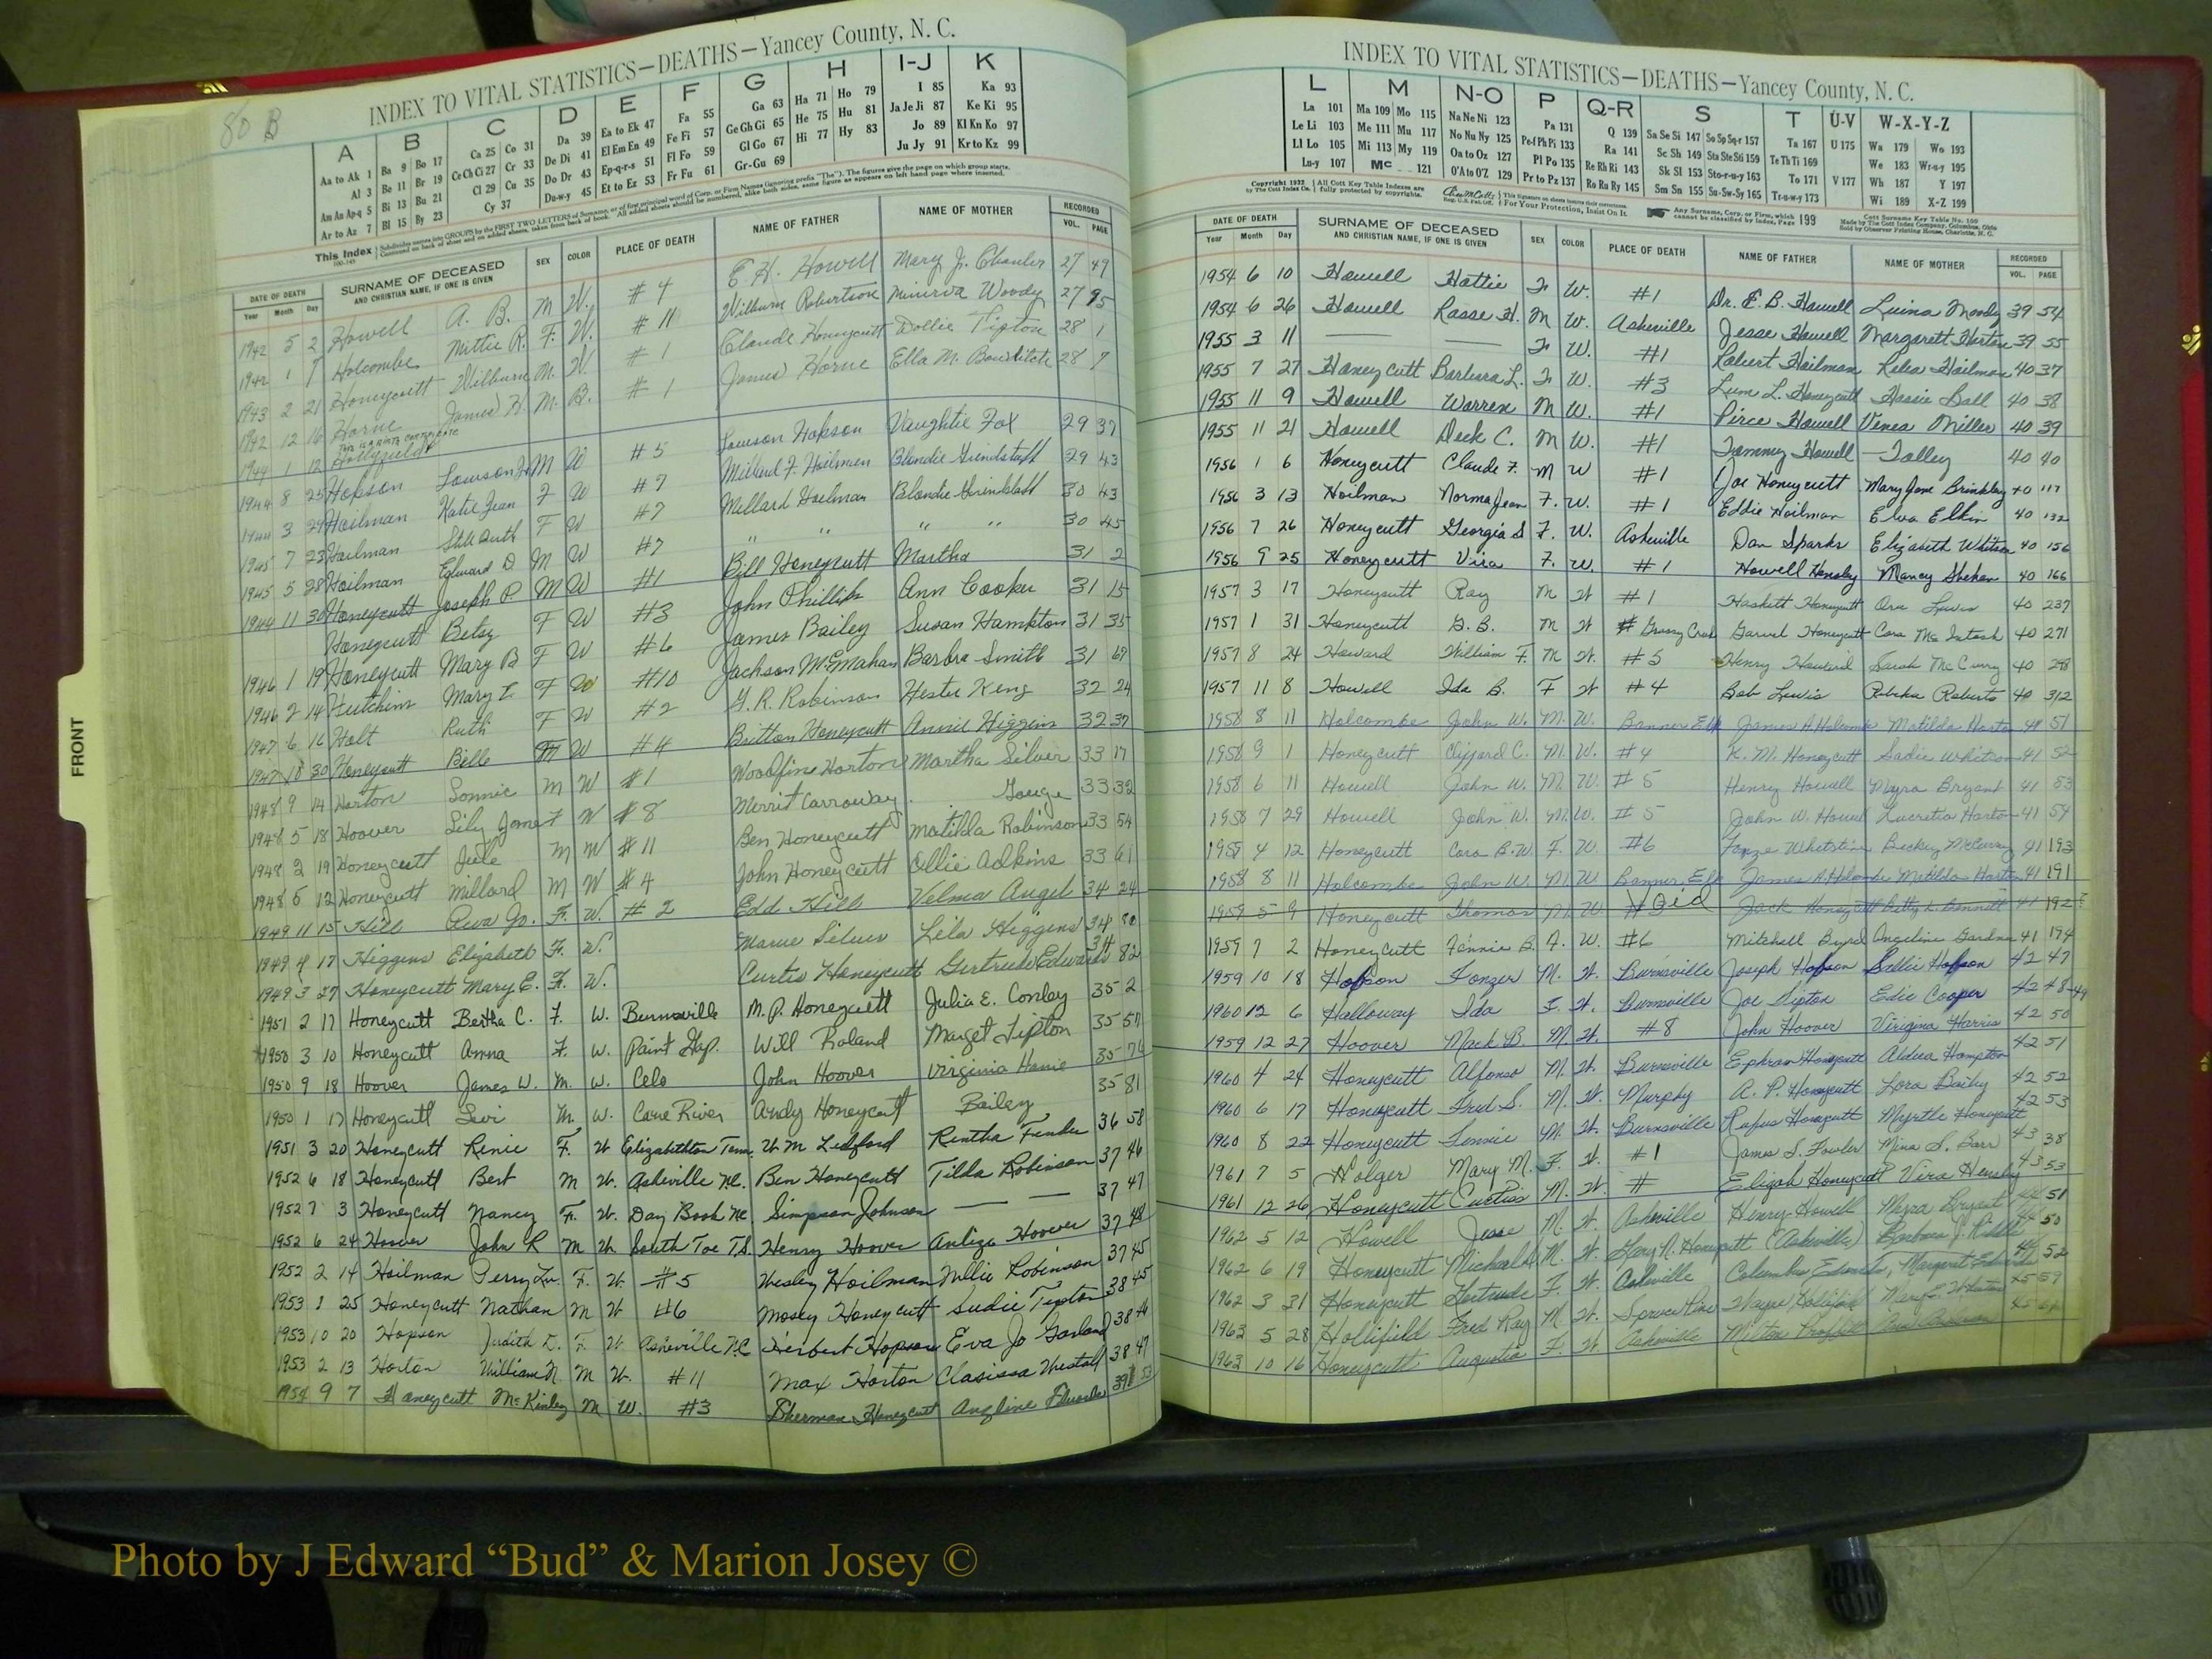 80 B
INDEX TO VITAL STATISTICS—DEATHS—Yancey County, N. C.
A B C D E F G H I-J K
Aa to Ak 1 Ba 9 Bo 17 Ca 25 Co 31 Da 39 Ea to Ek 47 Fa 55 Ga 63 Ha 71 Ho 79 I 85 Ka 93
Al 3 Be 11 Br 19 Ce Ch Ci 27 Cr 33 De Di 41 El Em En 49 Fe Fi 57 Ge Gh Gi 65 He 75 Hu 81 Ja Je Ji 87 Ke Ki 95
Am An Ap-q 5 Bi 13 Bu 21 Cl 29 Cu 35 Do Dr 43 Ep-q-r-s 51 Fl Fo 59 Gl Go 67 Hi 77 Hy 83 Jo 89 Kl Kn Ko 97
Ar to Az 7 Bl 15 By 23 Cy 37 Du-w-y 45 Et to Ez 53 Fr Fu 61 Gr-Gu 69 Ju Jy 91 Kr to Kz 99
DATE OF DEATH Year Month Day SURNAME OF DECEASED AND CHRISTIAN NAME, IF ONE IS GIVEN SEX COLOR PLACE OF DEATH NAME OF FATHER NAME OF MOTHER RECORDED VOL. PAGE
1942 5 2 Howell A. B. M W. #4 E. H. Howell Mary J. 27 49
1942 1 Holcombe Mittie R. F. W. #11 Wilburn Robertson Minerva Woody 27 95
1943 2 21 Honeycutt Wilburn M. W. #1 Claude Honeycutt Dollie Tipton 28 1
1942 12 16 Horne James H. M. B. #1 James Horne Ella M. 28 9
1944 1 12 Hollyfield
1944 8 25 Hopson Lawson Jr M W #5 Lawson Hopson Vaughtie Fox 29 37
1944 3 29 Hoilman Katie Jean F W #7 Millard F. Hoilman Blondie Grindstaff 29 43
1945 7 23 Hoilman F W #7 Millard Hoilman Blondie 30 43
1945 5 28 Hoilman Edward D M W #7 " " " " 30 45
1944 11 30 Honeycutt Joseph P M W #1 Bill Honeycutt Martha 31 2
Honeycutt Betsy F W #3 John Phillips Ann Cooper 31 15
1946 1 19 Honeycutt Mary B F W #6 James Bailey Susan Hampton 31 35
1946 2 14 Hutchins Mary E. F W #10 Jackson McMahan Barbra Smith 31 69
1947 6 16 Holt Ruth F W #2 G. R. Robinson Hester King 32 24
1947 10 30 Honeycutt Bille W #4 Britton Honeycutt Annie Higgins 32 37
1948 9 14 Horton Lonnie M W #1 Woodfin Horton Martha Silver 33 17
1948 5 18 Hoover Lily Jane F W #8 Merrit Carroway Gouge 33 32
1948 2 19 Honeycutt Jule M W #11 Ben Honeycutt Matilda Robinson 33 54
1948 5 12 Honeycutt Millard M W #4 John Honeycutt Ollie Adkins 33 61
1949 11 15 Hill Reva Jo. F. W. #2 Edd Hill Velma Angel 34 24
1949 4 17 Higgins Elizabeth F. W. Silver Lila Higgins 34 80
1949 3 27 Honeycutt Mary E. F. W. Curtis Honeycutt Gertrude Edwards 34 82
1951 2 17 Honeycutt Bertha C. F. W. Burnsville M. P. Honeycutt Julia E. Conley 35 2
1950 3 10 Honeycutt Anna F. W. Paint Gap. Will Roland Marget Tipton 35 57
1950 9 18 Hoover James W. M. W. Celo John Hoover Virginia 35 76
1950 1 17 Honeycutt Levi M. W. Cane River Andy Honeycutt Bailey 35 81
1951 3 20 Honeycutt Renie F. W Elizabethton Tenn. W. M Ledford Rintha Fender 36 58
1952 6 18 Honeycutt Bert M W. Asheville NC. Ben Honeycutt Tilda Robinson 37 46
1952 7 3 Honeycutt Nancy F. W. Day Book NC Simpson Johnson — — 37 47
1952 6 24 Hoover John R M W. South Toe T.S. Henry Hoover Hoover 37 48
1952 2 14 Hoilman Perry Lu. F. W #5 Wesley Hoilman Nellie Robinson 37 45
1953 1 25 Honeycutt Nathan M W #6 Mosey Honeycutt Sudie Tipton 38 45
1953 10 20 Hopson Judith D. F. W Asheville N.C Herbert Hopson Eva Jo Garland 38 46
1953 2 13 Horton William N. M W. #11 Max Horton Clarissa Westall 38 47
1954 9 7 Honeycutt McKinley M W. #3 Sherman Honeycutt Angline Edwards 39
INDEX TO VITAL STATISTICS—DEATHS—Yancey County, N. C.
L M N-O P Q-R S T U-V W-X-Y-Z
La 101 Ma 109 Mo 115 Na Ne Ni 123 Pa 131 Q 139 Sa Se Si 147 So Sp Sq-r 157 Ta 167 U 175 Wa 179 Wo 193
Le Li 103 Me 111 Mu 117 No Nu Ny 125 Pe-f Ph Pi 133 Ra 141 Sc Sh 149 Sta Ste Sti 159 Te Th Ti 169 We 183 Wr-u-y 195
Ll Lo 105 Mi 113 My 119 Oa to Oz 127 Pl Po 135 Re Rh Ri 143 Sk Sl 153 Sto-r-u-y 163 To 171 V 177 Wh 187 Y 197
Lu-y 107 Mc 121 O'A to O'Z 129 Pr to Pz 137 Ro Ru Ry 145 Sm Sn 155 Su-Sw-Sy 165 Tr-u-w-y 173 Wi 189 X-Z 199
DATE OF DEATH Year Month Day SURNAME OF DECEASED AND CHRISTIAN NAME, IF ONE IS GIVEN SEX COLOR PLACE OF DEATH NAME OF FATHER NAME OF MOTHER RECORDED VOL. PAGE
1954 6 10 Howell Hattie F W. #1 Dr. E. B. Howell Luina Moody 39 54
1954 6 26 Howell Rasse H. M W. Asheville Jesse Howell Margarett Horton 39 55
1955 3 11 — — F W. #1 Robert Hoilman Relea Hoilman 40 37
1955 7 27 Honeycutt Barbara L. F W. #3 Lum L. Honeycutt Hassie Ball 40 38
1955 11 9 Howell Warren M W. #1 Pirce Howell Venea Miller 40 39
1955 11 21 Howell Deck C. M W. #1 Tommy Howell — Talley 40 40
1956 1 6 Honeycutt Claude F. M W #1 Joe Honeycutt Mary Jane Brinkley 40 117
1956 3 13 Hoilman Norma Jean F. W. #1 Eddie Hoilman Elva Elkin 40 132
1956 7 26 Honeycutt Georgia S F. W. Asheville Dan Sparks Elizabeth Whitson 40 156
1956 9 25 Honeycutt Vira F. W. #1 Howell Hensley Mancy Shehan 40 166
1957 3 17 Honeycutt Ray M W #1 Haskett Honeycutt Ora Lewis 40 237
1957 1 31 Honeycutt G. B. M W # Grassy Creek Garvel Honeycutt Cora McIntosh 40 271
1957 8 24 Howard William F. M W. #5 Henry Howard Sarah McCurry 40 298
1957 11 8 Howell Ida B. F W #4 Bob Lewis Rebeka Roberts 40 312
1958 8 11 Holcombe John W. M. W. Banner Elk James A Holcombe Matilda Horton 41 51
1958 9 1 Honeycutt Clifford C. M. W. #4 K. M. Honeycutt Sadie Whitson 41 52
1958 6 11 Howell John W. M. W. #5 Henry Howell Myra Bryant 41 53
1958 7 29 Howell John W. M. W. #5 John W. Howell Lucretia Horton 41 54
1958 4 12 Honeycutt Cora B. W. F. W. #6 Whitson Beckey McCurry 41 153
1958 8 11 Holcombe John W. M. W Banner Elk James A Holcombe Matilda Horton 41 191
1959 5 9 Honeycutt Thomas M. W. Jack Honeycutt Betty L. Bennett 41 192
1959 7 2 Honeycutt Fannie B. F. W. #6 Mitchell Byrd Angeline Gardner 41 194
1959 10 18 Hopson Fonzer M. W. Burnsville Joseph Hopson Sallie Hopson 42 47
1960 12 6 Holloway Ida F. W. Burnsville Joe Tipton Edie Cooper 42 48-49
1959 12 27 Hoover Mack B. M W. #8 John Hoover Virigina Harris 42 50
1960 4 24 Honeycutt Alfonso M. W. Burnsville Ephram Honeycutt Hampton 42 51
1960 6 17 Honeycutt Fred S. M. W. Murphy A. P. Honeycutt Lora Bailey 42 52
1960 8 22 Honeycutt M. W. Burnsville Rufus Honeycutt Myrtle Honeycutt 42 53
1961 7 5 Holger Mary M. F. W. #1 James S. Fowler Mina S. 43 38
1961 12 26 Honeycutt Curtiss M. W. # Elizah Honeycutt Vira Hensley 43 53
1962 5 12 Howell Jesse M. W. Asheville Henry Howell Myra Bryant 51
1962 6 19 Honeycutt Michael M. W. Gary N. Honeycutt (Asheville) Barbara J. Riddle 50
1962 3 31 Honeycutt Gertrude F. W. Asheville Columbus Edwards, Margaret 52
1963 5 28 Hollifield Fred Ray M W. Spruce Pine Wayne Hollifield 45 59
1963 10 16 Honeycutt Augusta F. W. Asheville Milton Proffitt
FRONT
Photo by J Edward “Bud” & Marion Josey ©